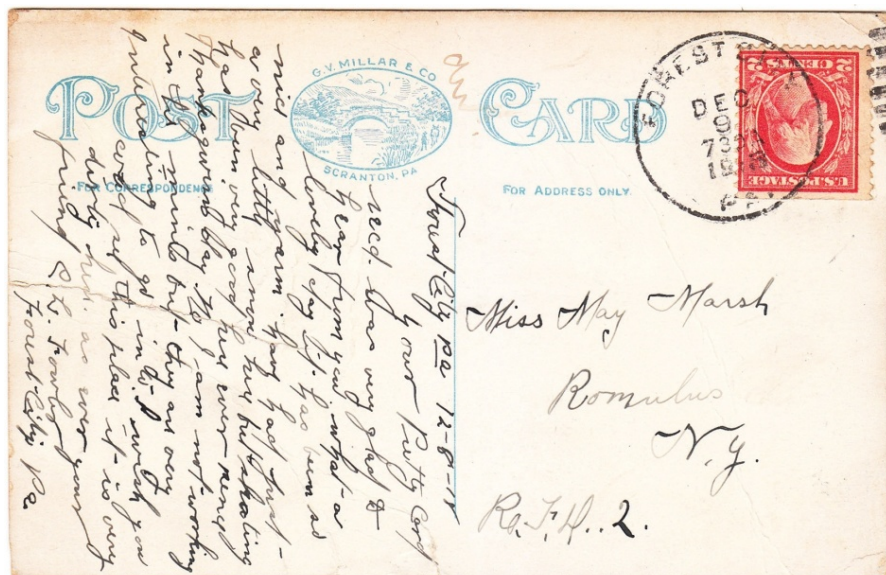 POST CARD
G.V. MILLAR & CO
SCRANTON, PA.
FOR CORRESPONDENCE
FOR ADDRESS ONLY.
FOREST CITY
DEC.
9
PA.
2 CENTS 2
U.S. POSTAGE
Forest City Pa 12-8-18
your Pretty Card
recd. was very glad to
hear from you. what a
lovely day it has been so
nice and warm. have had just
a very little snow here but skating
has been very good here ever since
Thanksgiving day. No I am not working
in the mines but they are very
interesting to go in to. I wish you
could see this place it is very
dirty here. as ever your
friend L. Fowler
Forest City Pa.
Miss May Marsh
Romulus
N.Y.
R.F.D. 2.